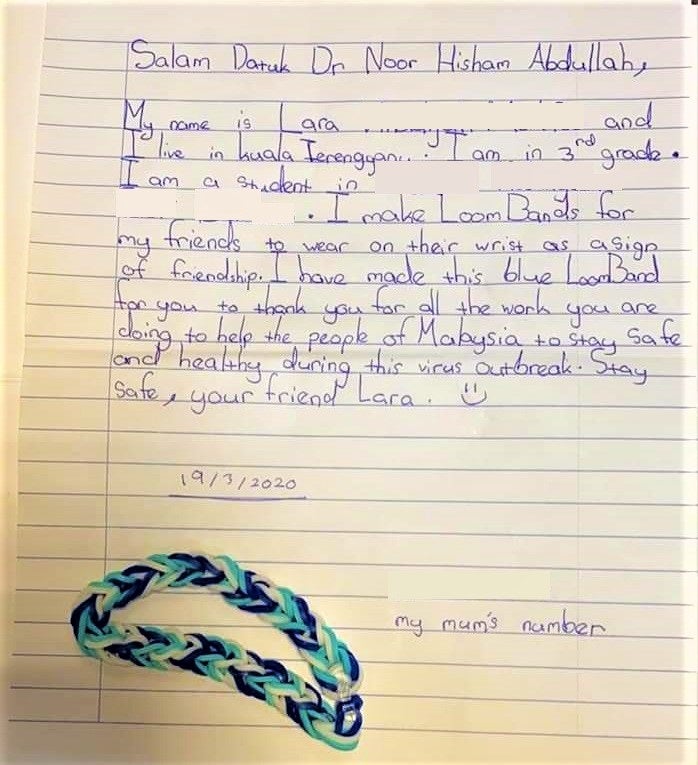 Salam Datuk Dr Noor Hisham Abdullah,
My name is Lara and
I live in Kuala Terenggan.. . I am in 3rd grade.
I am a student in
. I make Loom Bands for
my friends to wear on their wrist as a sign
of friendship. I have made this blue Loom Band
for you to thank you for all the work you are
doing to help the people of Malaysia to stay safe
and healthy during this virus outbreak. Stay
safe, your friend Lara. :)
19/3/2020
my mum's number